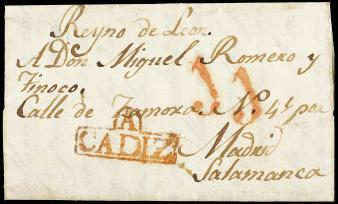 Reyno de Leon.
A Dn. Miguel Romero y
Tinoco.
Calle de Zamora. No. 4, por
Madrid
Salamanca
A
CADIZ
11